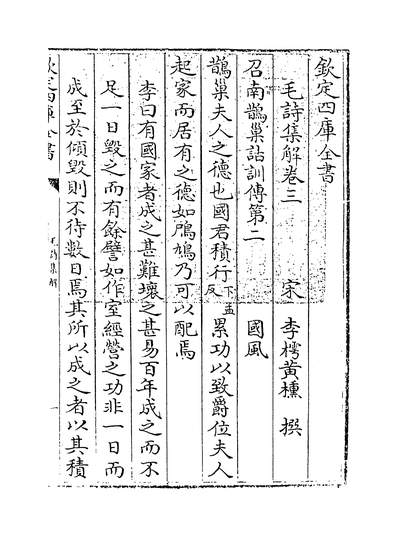 欽定四庫全書
毛詩集解卷三
宋 李樗黃櫄 撰
召南鵲巢詁訓傳第二 國風
鵲巢夫人之德也國君積行下孟反累功以致爵位夫人
起家而居有之德如鳲鳩乃可以配焉
李曰有國家者成之甚難壞之甚易百年成之而不
足一日毀之而有餘譬如作室經營之功非一日而
成至於傾毀則不待數日焉其所以成之者以其積
欽定四庫全書
毛詩集解
一